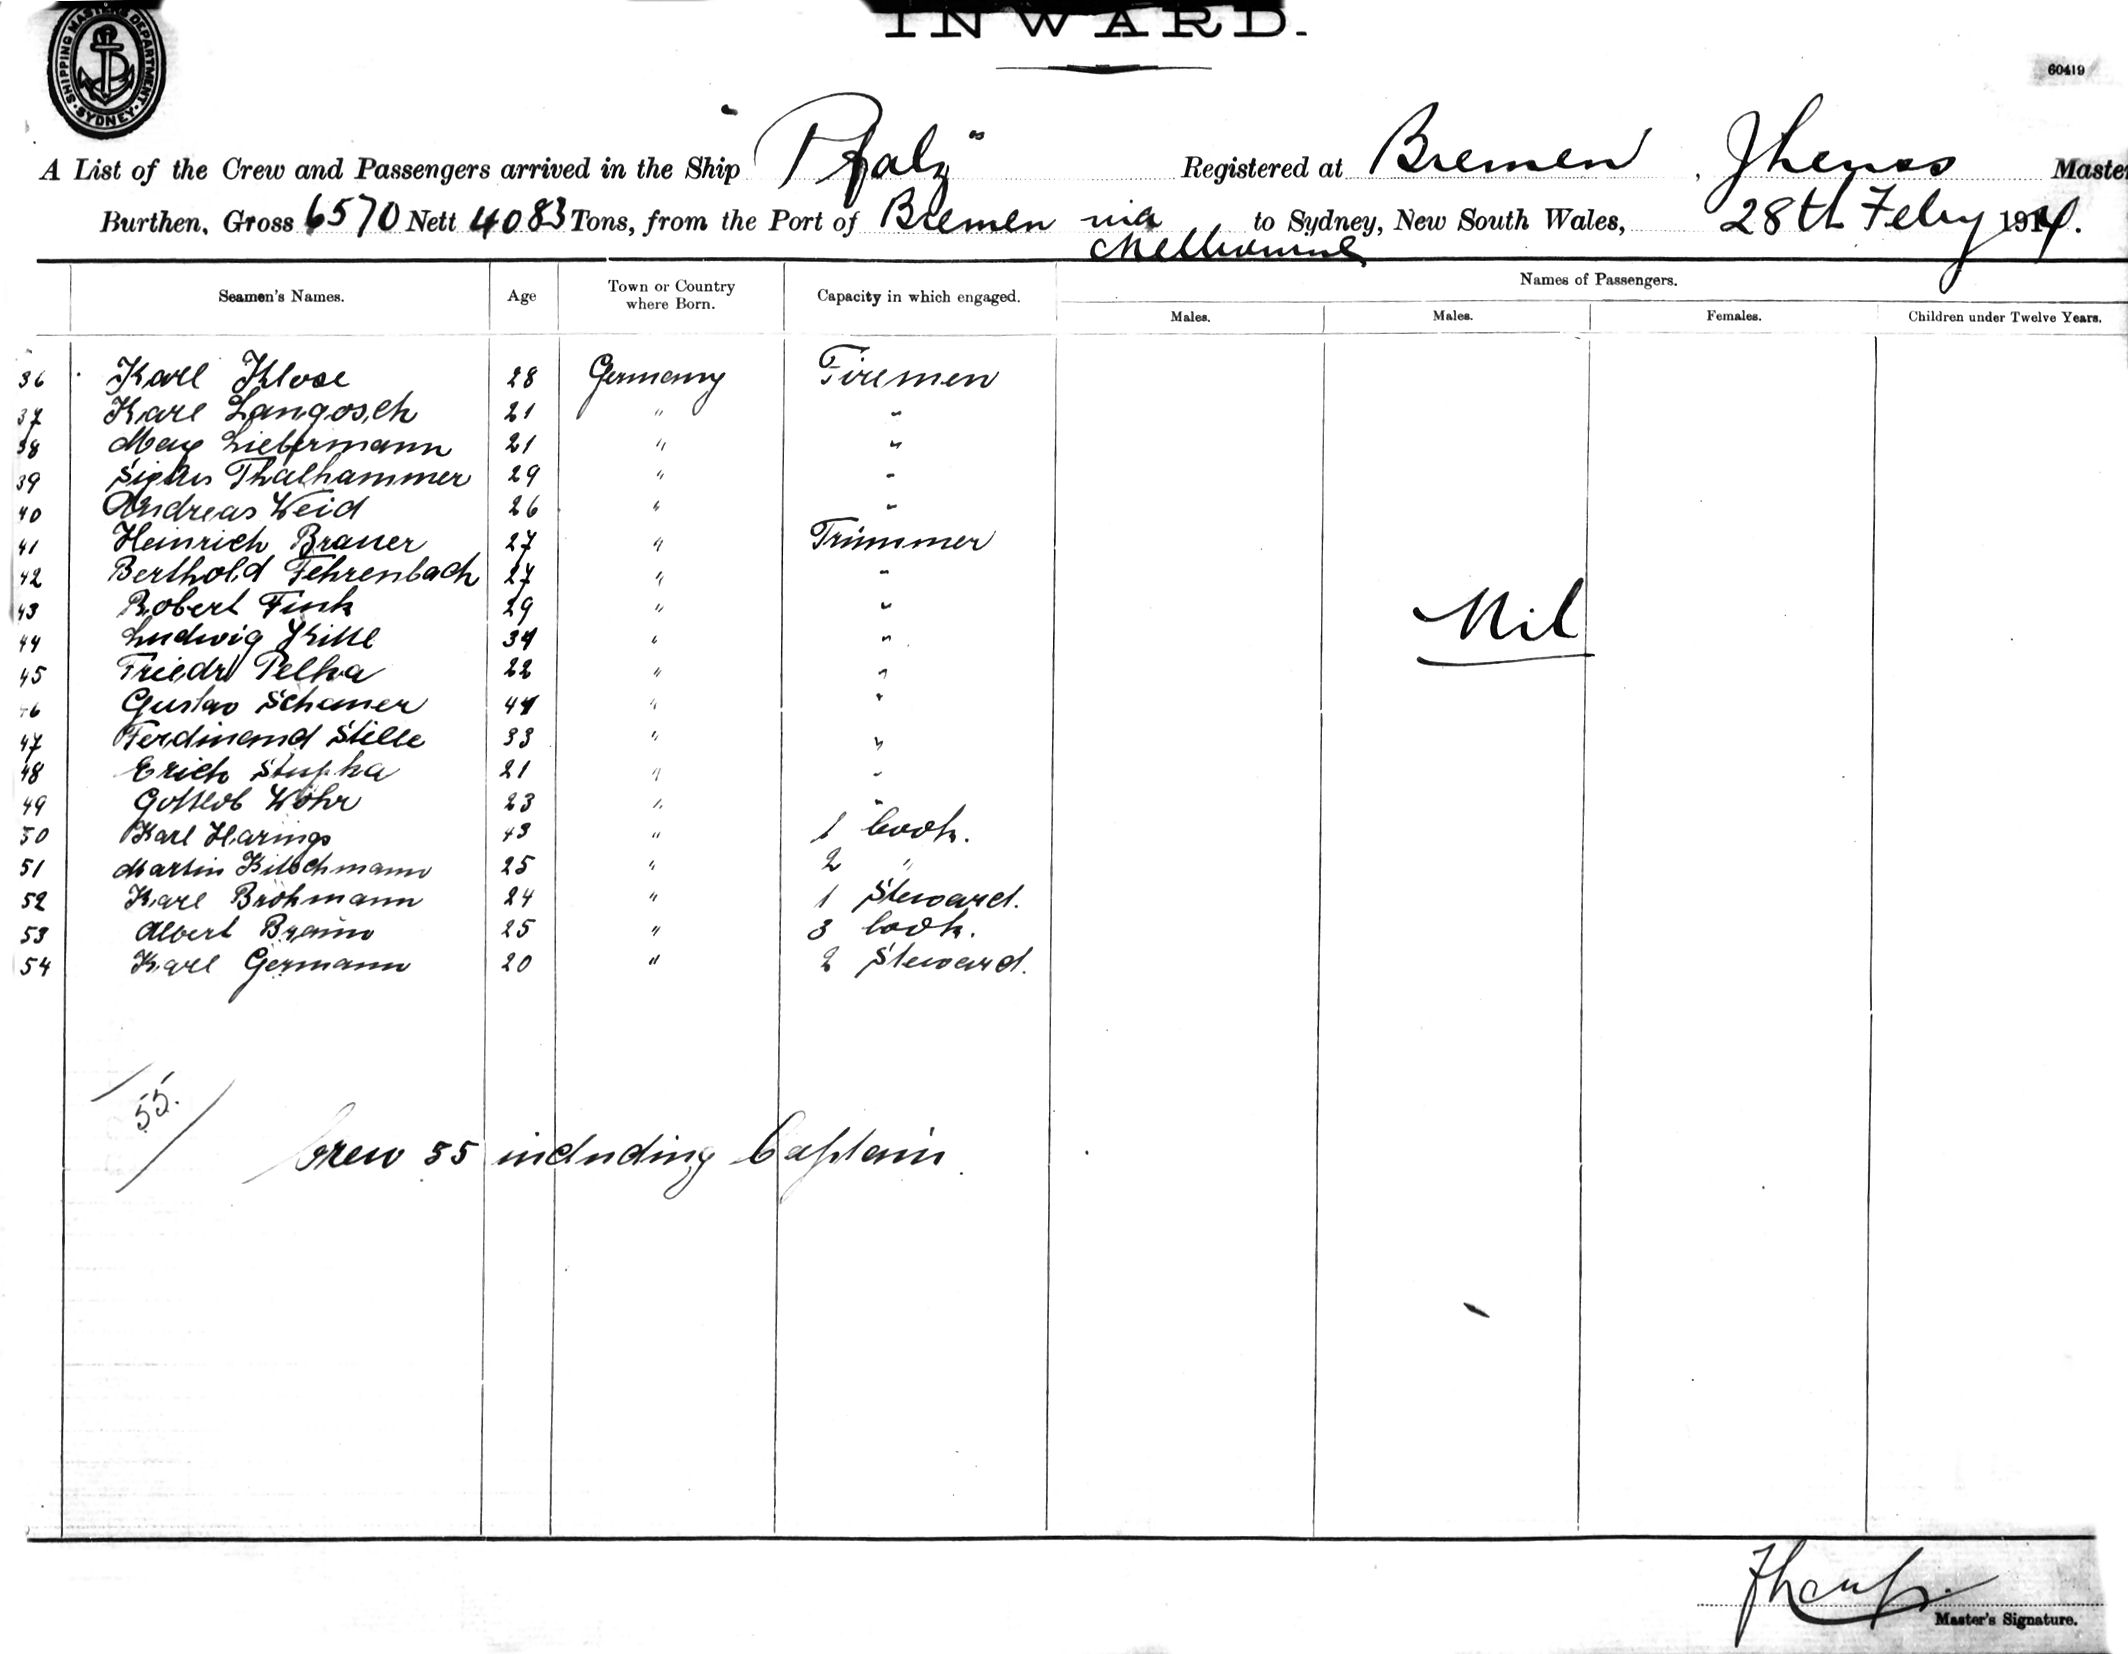 INWARD.
SHIPPING MASTERS DEPARTMENT SYDNEY
60419
A List of the Crew and Passengers arrived in the Ship "Pfalz" Registered at Bremen, Master
Burthen, Gross 6570 Nett 4083 Tons, from the Port of Bremen via Melbourne to Sydney, New South Wales, 28th Feby 1914.
Seamen's Names. Age Town or Country where Born. Capacity in which engaged. Names of Passengers.
Males. Males. Females. Children under Twelve Years.
36 Karl Klose 28 Germany Firemen
37 Karl Langosch 21 " "
38 Max Liebermann 21 " "
39 Thalhammer 29 " "
40 Andreas Weid 26 " "
41 Heinrich Brauer 27 " Trimmer
42 Berthold Fehrenbach 27 " "
43 Robert Fink 29 " "
44 Ludwig 34 " "
45 Friedr Pelka 22 " "
46 Gustav Schauer 44 " "
47 Ferdinand Stille 33 " "
48 Erich Stupka 21 " "
49 Gottlob Wöhr 23 " "
50 Karl Harings 43 " 1 Cook.
51 Martin Kitschmann 25 " 2 "
52 Karl Brohmann 24 " 1 Steward.
53 Albert Braun 25 " 3 Cook.
54 Karl Germann 20 " 2 Steward.
Nil
55.
Crew 55 including Captain
Master's Signature.